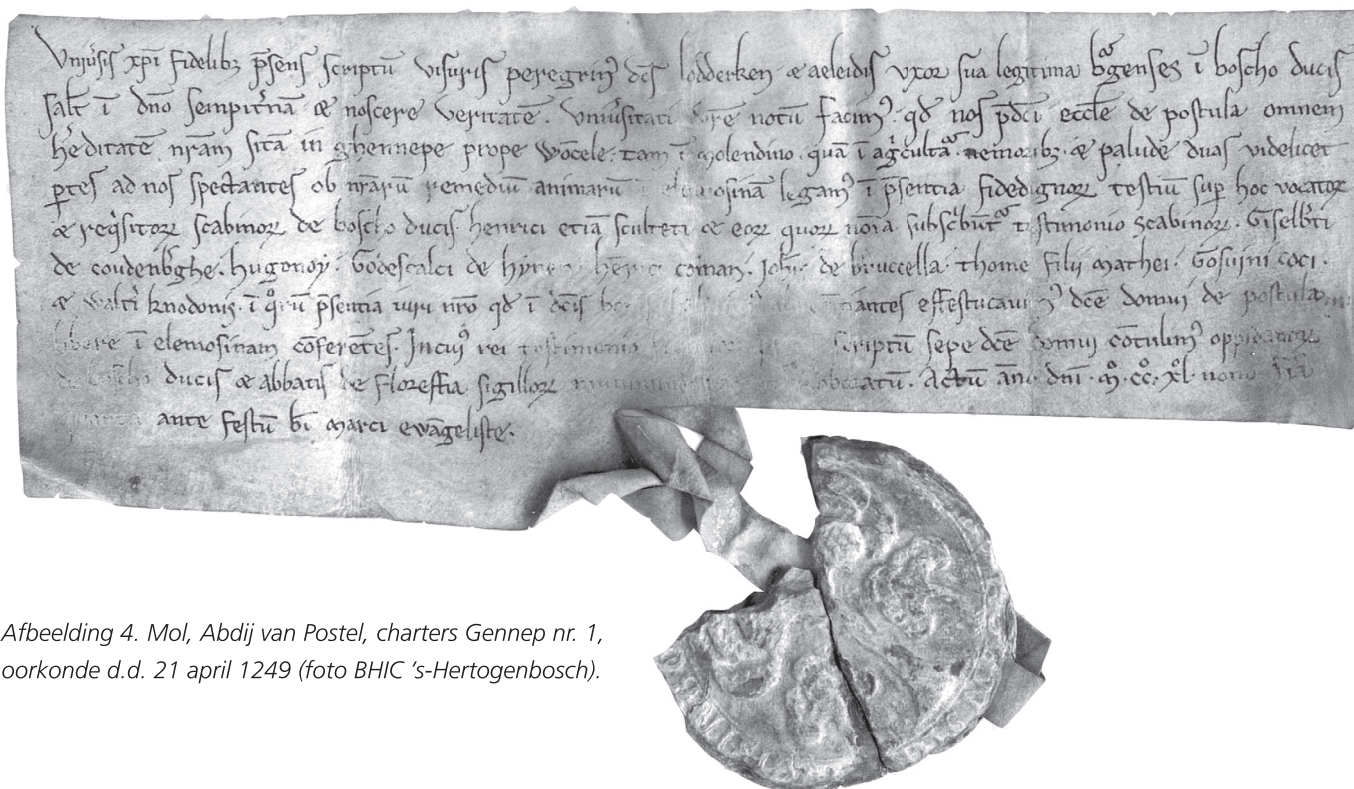 Vniu͛sis xp̄i fidelibȝ p̄sens scriptū visuris peregrinꝰ dc̄s lodderken ⁊ aeleidis vxor sua legitima b͛genses ī boscho ducis
salt̄ ī dn̄o sempit͛nā ⁊ noscere veritatē. Vniu͛sitati vr̄e notū facimꝰ. qd̄ nos p̄dc̄i eccl̄e de postula omnem
h͛editatē nr̄am sitā in ghennepe prope wocele. tam ī molendino. quā ī ag͛cultᷓa nemoribȝ. ⁊ palude duas videlicet
ꝑtes ad nos spectantes ob nr̄arū remediū animarū ī elemosinā legamꝰ ī p̄sentia fidedignoꝝ testiū sup̄ hoc vocatoꝝ
⁊ req͛sitoꝝ scabinoꝝ de boscho ducis. henrici etiā sculteti ⁊ eoꝝ quoꝝ nōīa subsc͛būtᷓ testimonio scabinoꝝ. Giselb͛ti
de coudenb͛ghe. hugonoy. Godescalci de hern̄ coman. Joh̄is de bruccella. thome filii mathei. Gosuini coci.
⁊ walt͛i knodonis. ī q͛rū p̄sentia iuri nr̄o qd̄ ī dc̄is effestucauimꝰ dc̄e domui de postula
libere ī elemosinam cōferētes. Jn cuiꝰ rei testimonio scriptū sepe dc̄e domui cōtulimꝰ oppidanoꝝ
de boscho ducis ⁊ abbatis de floreffia sigilloꝝ roboratū. Actū an̄o dn̄i. m̊. cc̊. xl̊. nono fīa
quarta ante festū bī marci ewāgeliste.
Afbeelding 4. Mol, Abdij van Postel, charters Gennep nr. 1,
oorkonde d.d. 21 april 1249 (foto BHIC 's-Hertogenbosch).